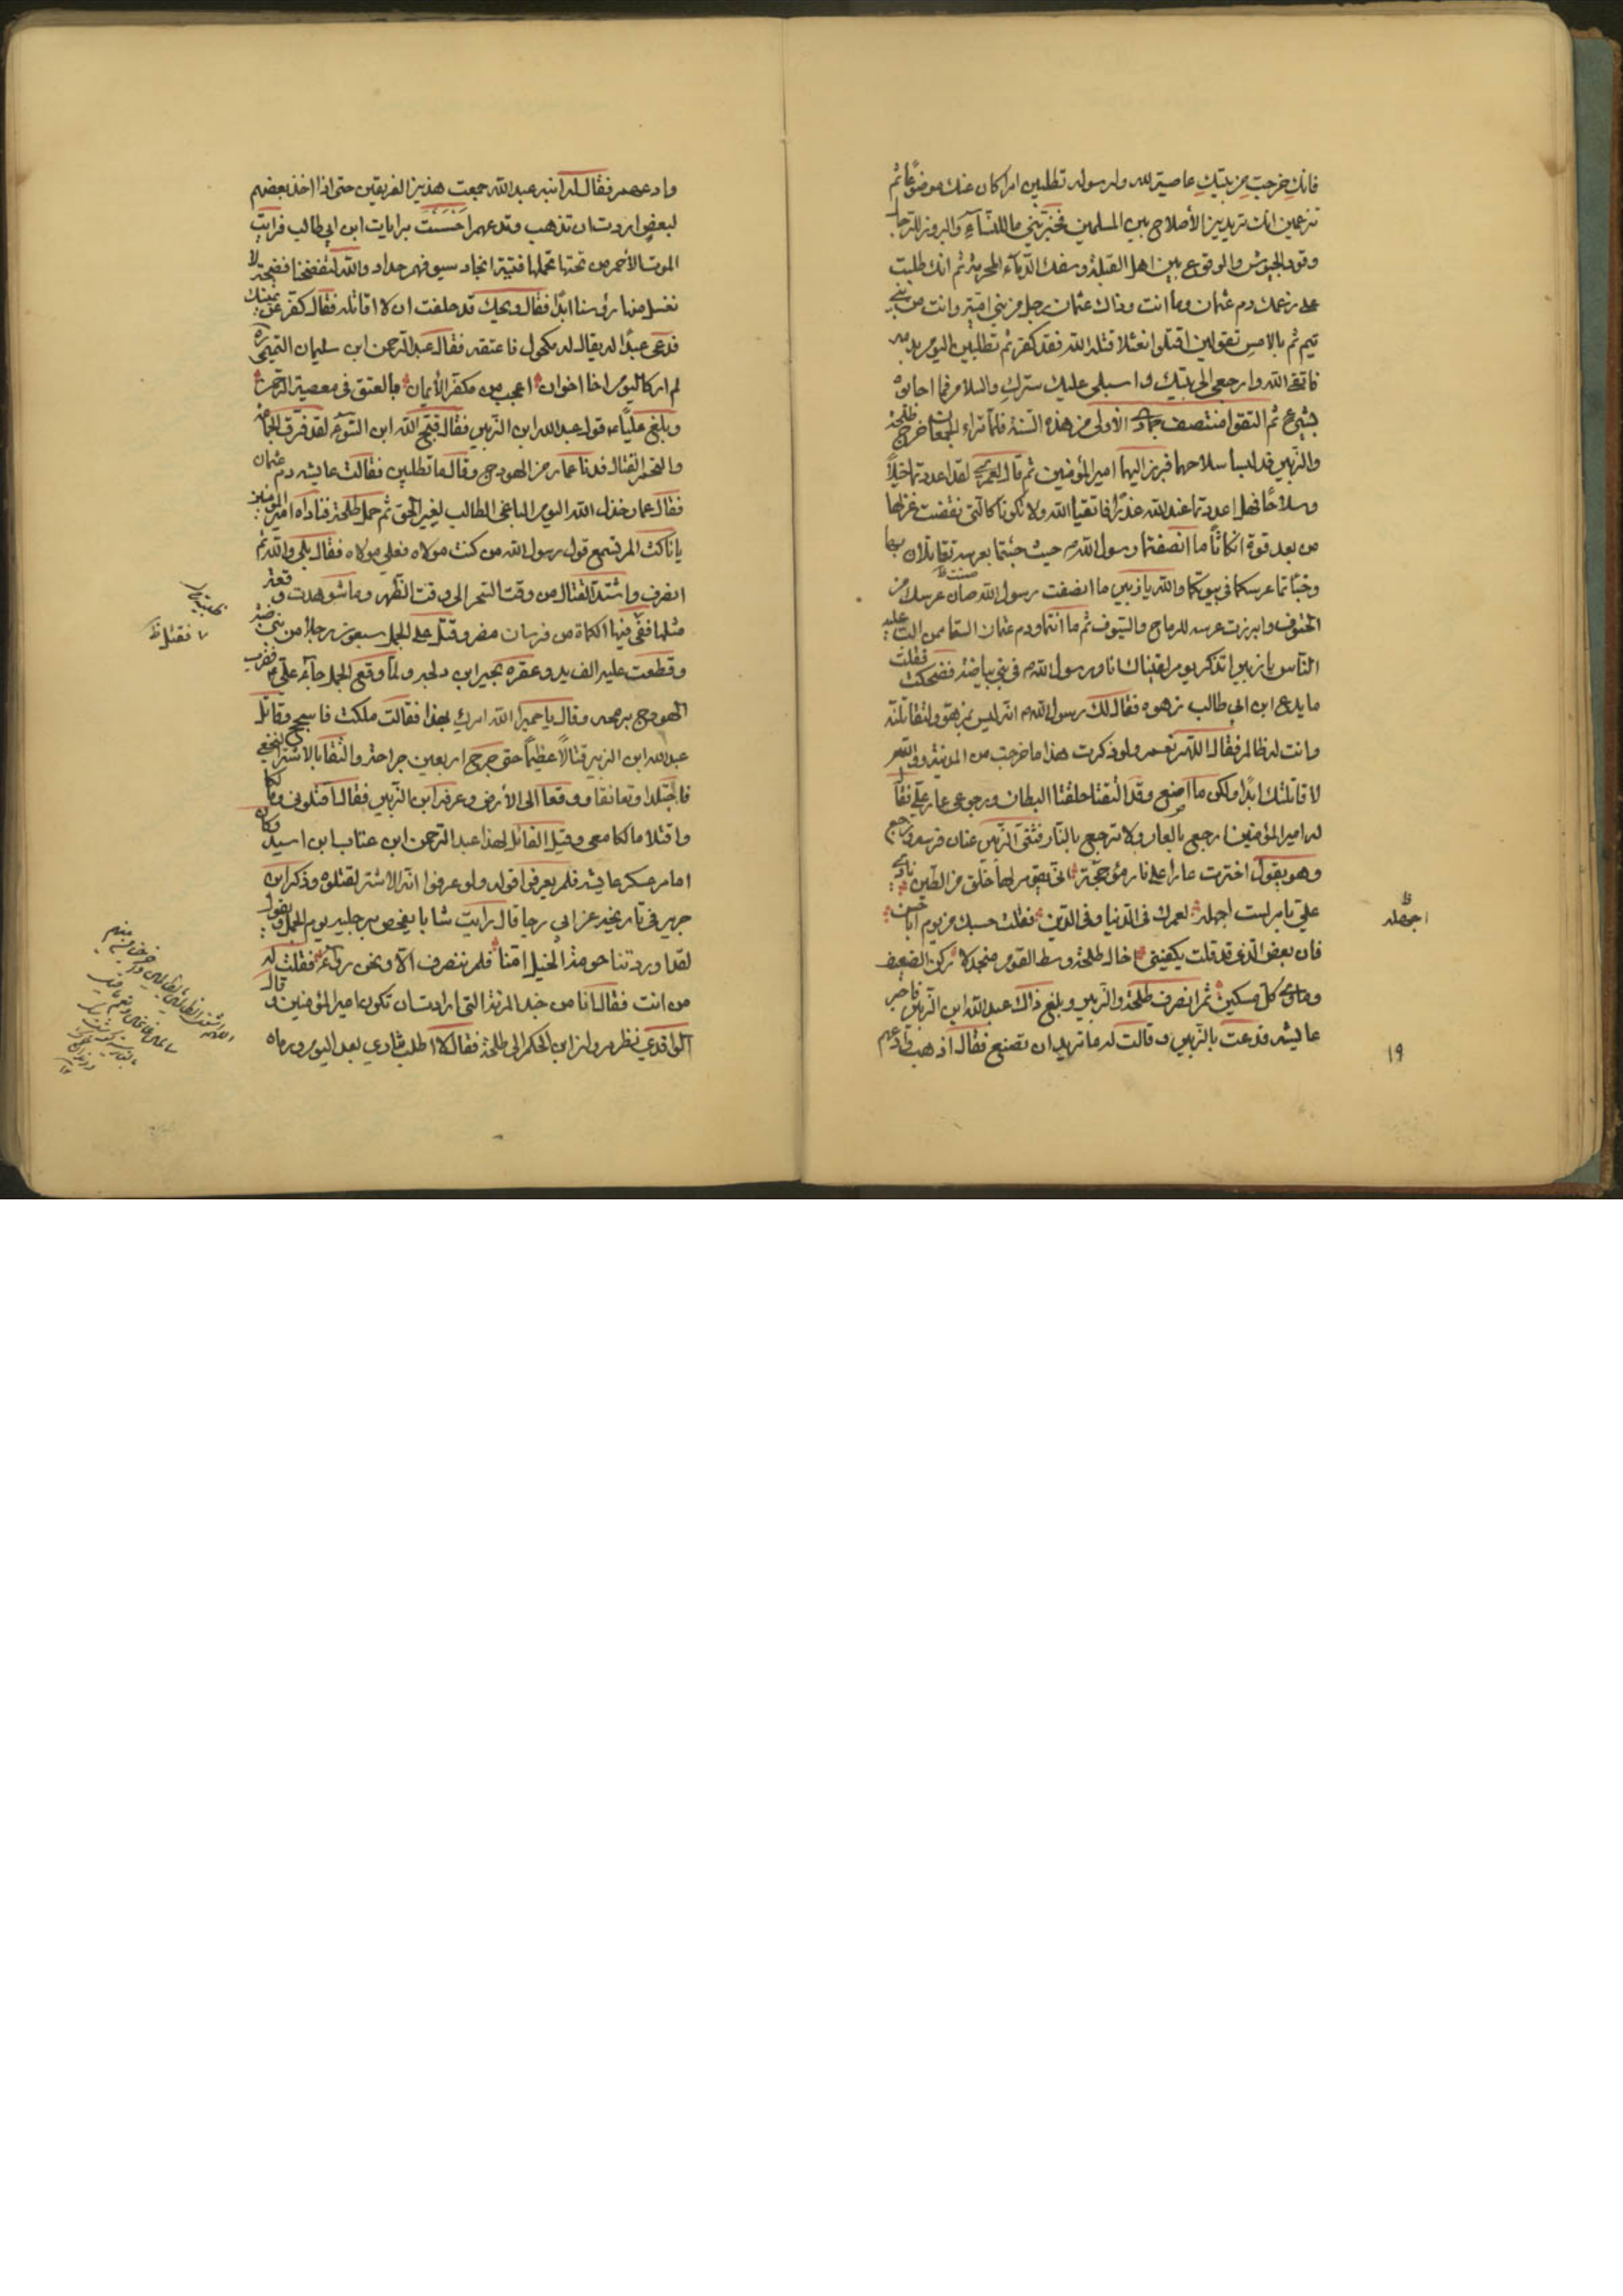 فانك خرجت من بيتك عاصية لله ولرسوله تطلبين امرا كان عنك موضوعا ثم
تزعمين انك تريدين الأصلاح بين المسلمين فخبريني ما للنسآء والبروز للرجال
وقود الجيوش والوقوع بين اهل القبلة وسفك الدمآء المحرمة ثم انك طلبت
على زعمك دم عثمان وما انت وذاك عثمان رجل من بني امية وانت من بني
تيم ثم بالامس تقولين اقتلوا نعثلا قتله الله فقد كفر ثم تطلبين اليوم بدمه
فاتقى الله وارجعى الى بيتك واسبلى عليك سترك والسلام فما اجابوه
بشيء ثم التقوا منتصف جمادى الأولى من هذه السنة فلما تراء الجمعان خرج طلحة
والزبير قد لبسا سلاحهما فبرز اليهما امير المؤمنين ثم قال لعمرى لقد اعددتما خيلاً
وسلاحًا فهل اعددتما عند الله عذرًا فاتقيا الله ولا تكونا كالتى نقضت غزلها
من بعد قوة انكاثًا ما انصفتما رسول الله حيث جئتما بعرسه تقاتلان بها
وخبأتما عرسكما فى بيوتكما والله يا زبير ما انصفت رسول الله صان عرسك من
الحتوف وابرزت عرسه للرماح والسيوف ثم ما انتما ودم عثمان الستما ممن الب عليه
الناس يا زبير اتذكر يوم لقيناك انا ورسول الله فى بني بياضة فضحكت فقلت
ما يدع ابن ابى طالب زهوه فقال لك رسول الله انه ليس بزهو ولتقاتلنه
وانت له ظالم فقال اللهم نعم ولو ذكرت هذا ما خرجت من المدينة ووالله
لا قاتلتك ابدًا ولكن ما اصنع وقد التقتا حلقتا البطان ورجوعى عار على فقال
له امير المؤمنين ارجع بالعار ولا ترجع بالنار فثنى الزبير عنان فرسه ورجع
وهو يقول اخترت عارًا على نار مؤججة انى يقوم لها خلق من الطين نادى
على بامر لست اجهله لعمرك فى الدنيا وفى الدين فقلت حسبك من يوم ابا حسن
فان بعض الذى قد قلت يكفينى اخال طلحة وسط القوم منجدلا ركن الضعيف
وماوى كل مسكين ثم انصرف طلحة والزبير وبلغ ذاك عبد الله ابن الزبير فاخبر
عايشه فدعت بالزبير وقالت له ما تريد ان تصنع فقال اذهب وادعهم
اجهله
١٩
وادعهم فقال له ابنه عبد الله جمعت هذين الفريقين حتى اذا اخذ بعضهم
لبعض اردت ان تذهب وتدعهم احسست برايات ابن ابى طالب فرايت
الموت الأحمر من تحتها تحملها فتية انجاد سيوفهم حداد والله لتفضحنا فضيحة لا
نغسل منها رؤسنا ابدًا فقال ويحك قد حلفت ان لا اقاتله فقال كفر عن يمينك
فدعى عبدًا له يقال له مكحول فاعتقه فقال عبد الرحمن ابن سليمان التميمى
لم ار كاليوم اخا اخوان اعجب من مكفر الأيمان بالعتق فى معصية الرحمن
وبلغ عليًا قول عبد الله ابن الزبير فقال قبح الله ابن السوء لقد فرق الجماعة
والتحم القتال فدنا عمار من الهودج وقال ما تطلبين فقالت عايشه دم عثمان
فقال عمار خذل الله اليوم الباغى الطالب لغير الحق ثم حمل طلحة فناداه امير المؤمنين
يا ناكث الم تسمع قول رسول الله من كنت مولاه فعلى مولاه فقال بلى والله ثم
انصرف واشتد القتال من وقت السحر الى وقت الظهر وما شوهدت وقعة
مثلها ففى فيها الكماة من فرسان مضر وقتل على الجمل سبعون رجلاً من بني ضبة
وقطعت عليه الف يد وعقره بجير ابن دلجه ولما وقع الجمل جآئه على فضرب
الهودج برمحه وقال يا حميرا الله امرك بهذا فقالت ملكت فاسجح وقاتل
عبد الله ابن الزبير قتالاً عظيمًا حتى جرح اربعين جراحة والتقا بالاشتر النخعى
فاجتلدا وتعانقا ووقعا الى الأرض وعرفه ابن الزبير فقال اقتلونى ومالكا
واقتلا مالكا معى وقيل القائل لهذا عبد الرحمن ابن عتاب ابن اسيد وكان
امام عسكر عايشه فلم يعرفوا قوله ولو عرفوا انه الاشتر لقتلوه وذكر ابن
جرير فى تاريخه عن ابى رجا قال رايت شابا يفحص برجليه يوم الجمل ويقول
لقد اوردتنا حومة الخيل امنا فلم ننصرف الا ونحن رواء فقلت له
من انت فقال انا من جند المرئة التى ارادت ان تكون امير المؤمنين وقال
الواقدى نظر مروان ابن الحكم الى طلحة فقال لا اطلب ثارى بعد اليوم ورماه
فقتل